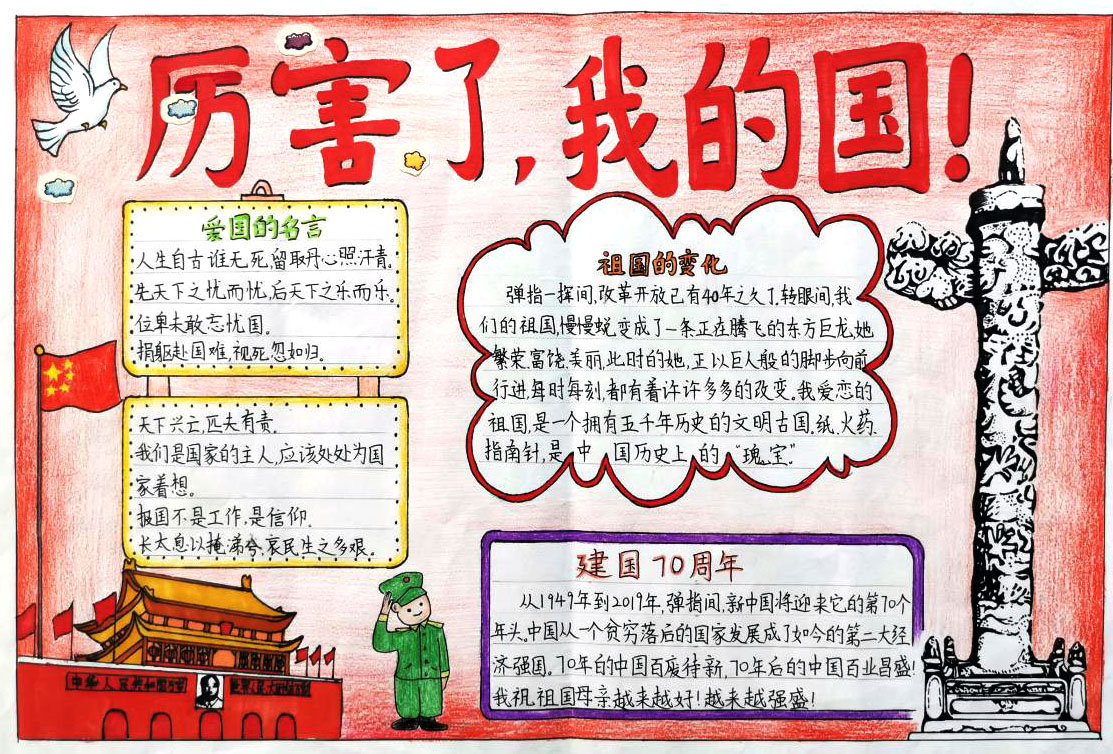 厉害了,我的国!
爱国的名言
人生自古谁无死,留取丹心照汗青。
先天下之忧而忧,后天下之乐而乐。
位卑未敢忘忧国。
捐躯赴国难,视死忽如归。
天下兴亡,匹夫有责.
我们是国家的主人,应该处处为国
家着想。
报国不是工作,是信仰.
长太息以掩涕兮,哀民生之多艰。
祖国的变化
弹指一挥间,改革开放已有40年之久了,转眼间,我
们的祖国,慢慢蜕变成了一条正在腾飞的东方巨龙,她
繁荣.富饶.美丽,此时的她,正以巨人般的脚步向前
行进,每时每刻,都有着许许多多的改变。我爱恋的
祖国,是一个拥有五千年历史的文明古国.纸.火药.
指南针,是中国历史上的"瑰宝".
建国70周年
从1949年到2019年,弹指间,新中国将迎来它的第70个
年头,中国从一个贫穷落后的国家发展成了如今的第二大经
济强国。70年的中国百废待新,70年后的中国百业昌盛!
我祝祖国母亲越来越好!越来越强盛!
中华人民共和国万岁